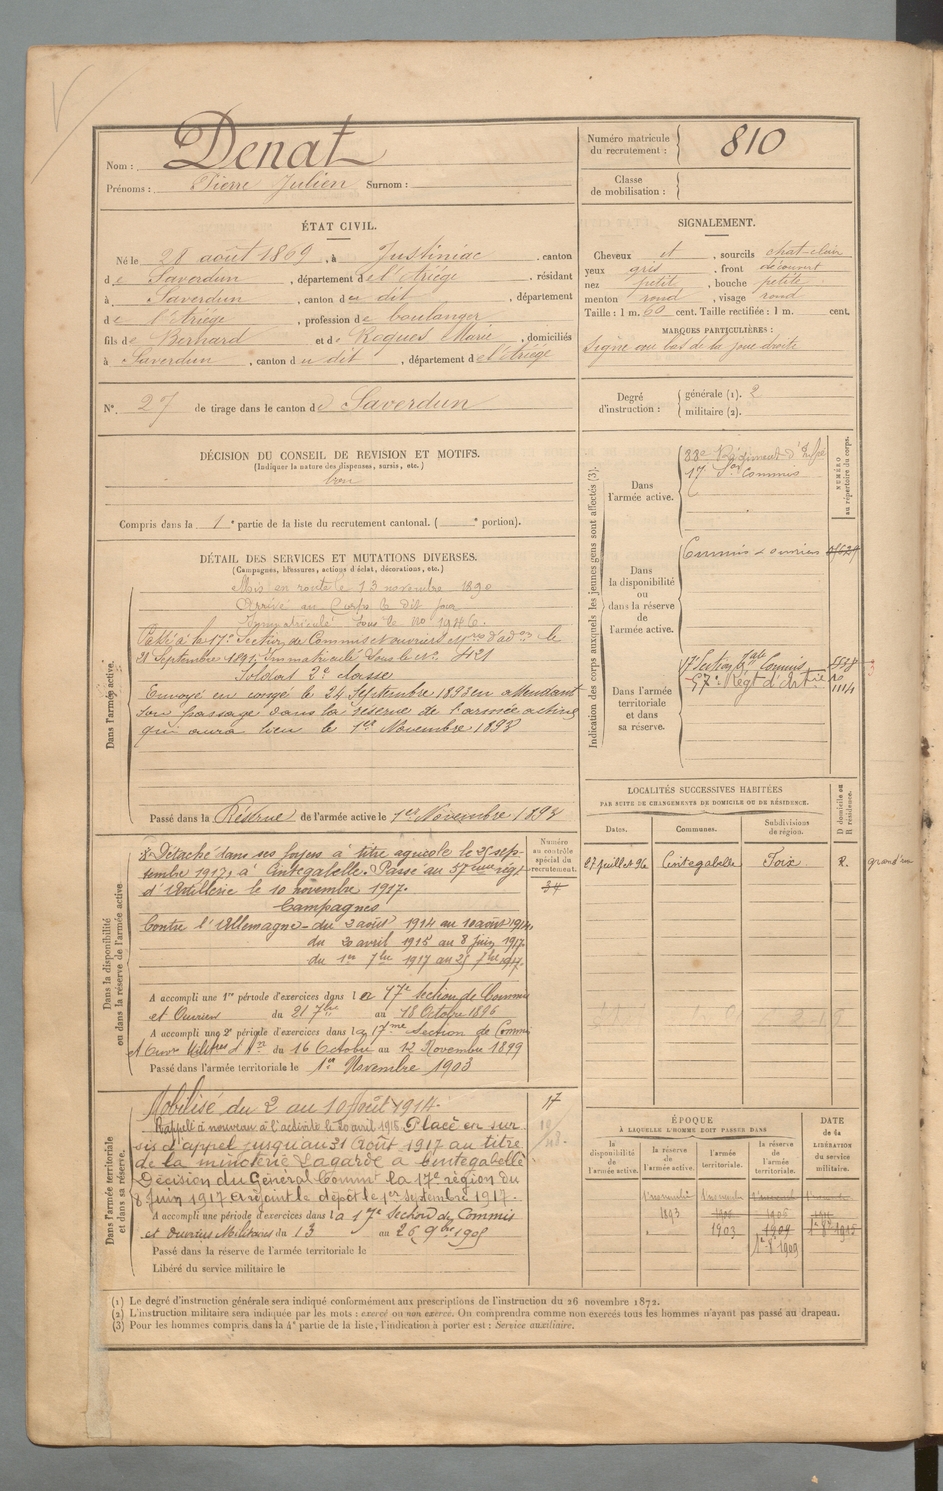 Nom : Denat
Prénoms : Pierre Julien Surnom :
Numéro matricule
du recrutement : 810
Classe
de mobilisation :
ÉTAT CIVIL.
Né le 28 août 1869, à Justiniac, canton
de Saverdun, département de l'Ariége, résidant
à Saverdun, canton du dit, département
de l'Ariége, profession de boulanger
fils de Bernard et de Roques Marie, domiciliés
à Saverdun, canton du dit, département de l'Ariége
N° 27 de tirage dans le canton de Saverdun
SIGNALEMENT.
Cheveux et, sourcils chat-clair
yeux gris, front découvert
nez petit, bouche petite
menton rond, visage rond
Taille : 1 m. 60 cent. Taille rectifiée : 1 m. cent.
MARQUES PARTICULIÈRES :
Signe au bas de la joue droite
Degré
d'instruction :
générale (1). 2
militaire (2).
DÉCISION DU CONSEIL DE REVISION ET MOTIFS.
(Indiquer la nature des dispenses, sursis, etc.)
bon
Compris dans la 1e partie de la liste du recrutement cantonal. ( e portion).
DÉTAIL DES SERVICES ET MUTATIONS DIVERSES.
(Campagnes, blessures, actions d'éclat, décorations, etc.)
Dans l'armée active.
Mis en route le 13 novembre 1890
Arrivé au Corps le dit jour
Immatriculé sous le no 1946.
Passé à la 17e Section de Commis et ouvriers d'adon le
21 Septembre 1891, Immatriculé sous le N° 421
Soldat 2e classe
Envoyé en congé le 24 Septembre 1893 en attendant
son passage dans la réserve de l'armée active
qui aura lieu le 1er Novembre 1893
Passé dans la Réserve de l'armée active le 1er Novembre 1893
Indication des corps auxquels les jeunes gens sont affectés (3).
NUMÉRO
au répertoire du corps.
Dans
l'armée active.
Régiment d'
17 Son Commis
Dans
la disponibilité
ou
dans la réserve
de
l'armée active.
Commis & ouvriers
Dans l'armée
territoriale
et dans
sa réserve.
17 Section Commis
57e Régt d'Artie
1114
LOCALITÉS SUCCESSIVES HABITÉES
PAR SUITE DE CHANGEMENTS DE DOMICILE OU DE RÉSIDENCE.
Dates. Communes. Subdivisions
de région.
D domicile ou
R résidence.
27 juillet 96 Cintegabelle Foix R.
Dans la disponibilité
ou dans la réserve de l'armée active
Numéro
au contrôle
spécial du
recrutement.
34
Détaché dans ses foyers à titre agricole le 25 sep-
tembre 1917, à Cintegabelle. Passé au 57eme régt
d'Artillerie le 10 novembre 1917.
Campagnes
Contre l'Allemagne - du 2 août 1914 au 10 août 1914
du 20 avril 1915 au 8 Juin 1917.
du 1er 7bre 1917 au 25 7bre 1917.
A accompli une 1re période d'exercices dans la 17e section de Commis
et Ouvriers du 21 7bre au 18 Octobre 1896
A accompli une 2e période d'exercices dans la 17me Section de Commis
et Ouvrs Milites d'Aon du 16 Octobre au 12 Novembre 1899
Passé dans l'armée territoriale le 1er Novembre 1903
Dans l'armée territoriale
et dans sa réserve.
Mobilisé du 2 au 10 Août 1914. 17
Rappelé à nouveau à l'activité le 20 avril 1915. Placé en sur-
sis d'appel jusqu'au 31 Août 1917 au titre
de la minoterie Lagarde à Cintegabelle
Décision du Général Commt la 17e région du
8 Juin 1917 A rejoint le dépôt le 1er septembre 1917.
A accompli une période d'exercices dans la 17e Section de Commis
et Ouvriers Militaires du 13 au 26 9bre 1905
Passé dans la réserve de l'armée territoriale le
Libéré du service militaire le
ÉPOQUE
À LAQUELLE L'HOMME DOIT PASSER DANS
la
disponibilité
de
l'armée active.
la réserve
de
l'armée active.
l'armée
territoriale.
la réserve
de
l'armée
territoriale.
DATE
de la
LIBÉRATION
du service
militaire.
1893 1903 1909
(1) Le degré d'instruction générale sera indiqué conformément aux prescriptions de l'instruction du 26 novembre 1872.
(2) L'instruction militaire sera indiquée par les mots : exercé ou non exercé. On comprendra comme non exercés tous les hommes n'ayant pas passé au drapeau.
(3) Pour les hommes compris dans la 4e partie de la liste, l'indication à porter est : Service auxiliaire.